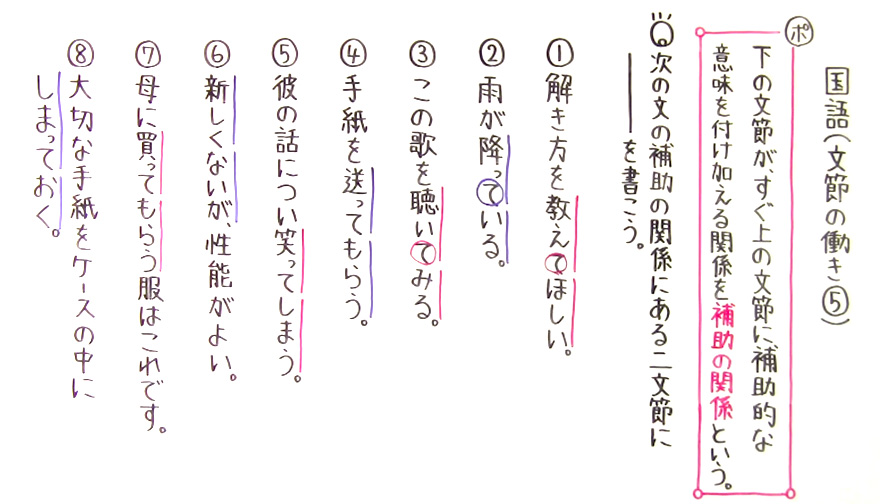 国語(文節の働き⑤)
ポ
下の文節が、すぐ上の文節に補助的な
意味を付け加える関係を補助の関係という。
Q 次の文の補助の関係にある二文節に
を書こう。
① 解き方を教えてほしい。
② 雨が降っている。
③ この歌を聴いてみる。
④ 手紙を送ってもらう。
⑤ 彼の話につい笑ってしまう。
⑥ 新しくないが、性能がよい。
⑦ 母に買ってもらう服はこれです。
⑧ 大切な手紙をケースの中に
しまっておく。